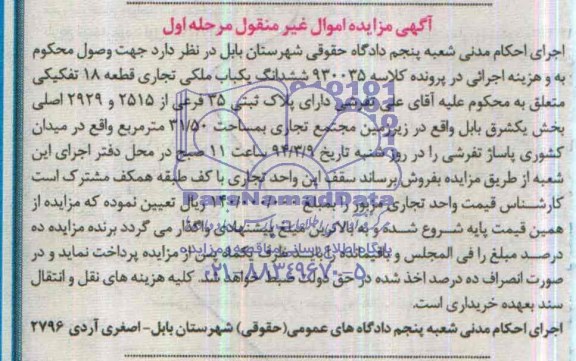 آگهی مزایده اموال غیر منقول مرحله اول
اجرای احکام مدنی شعبه پنجم دادگاه حقوقی شهرستان بابل در نظر دارد جهت وصول محکوم
به و هزینه اجرائی در پرونده کلاسه ۹۳۰۰۳۵ ششدانگ یکباب ملکی تجاری قطعه ۱۸ تفکیکی
متعلق به محکوم علیه آقای علی تفرشی دارای پلاک ثبتی ۳۵ فرعی از ۲۵۱۵ و ۲۹۲۹ اصلی
بخش یکشرق بابل واقع در زیرزمین مجتمع تجاری بمساحت ۳۱/۵۰ مترمربع واقع در میدان
کشوری پاساژ تفرشی را در روز شنبه تاریخ ۹۴/۳/۹ ساعت ۱۱ صبح در محل دفتر اجرای این
شعبه از طریق مزایده بفروش برساند سقف این واحد تجاری با کف طبقه همکف مشترک است
کارشناس قیمت واحد تجاری مزبور را بمبلغ ریال تعیین نموده که مزایده از
همین قیمت پایه شروع شده و به بالاترین مبلغ پیشنهادی واگذار می گردد برنده مزایده ده
درصد مبلغ را فی المجلس و باقیمانده را باید ظرف یکماه پس از مزایده پرداخت نماید و در
صورت انصراف ده درصد اخذ شده در حق دولت ضبط خواهد شد. کلیه هزینه های نقل و انتقال
سند بعهده خریداری است.
اجرای احکام مدنی شعبه پنجم دادگاه های عمومی(حقوقی) شهرستان بابل- اصغری آردی ۲۷۹۶
ParsNamadData
پایگاه اطلاع رسانی مناقصه و مزایده
۰۲۱-۸۸۳۴۹۶۷۰-۵